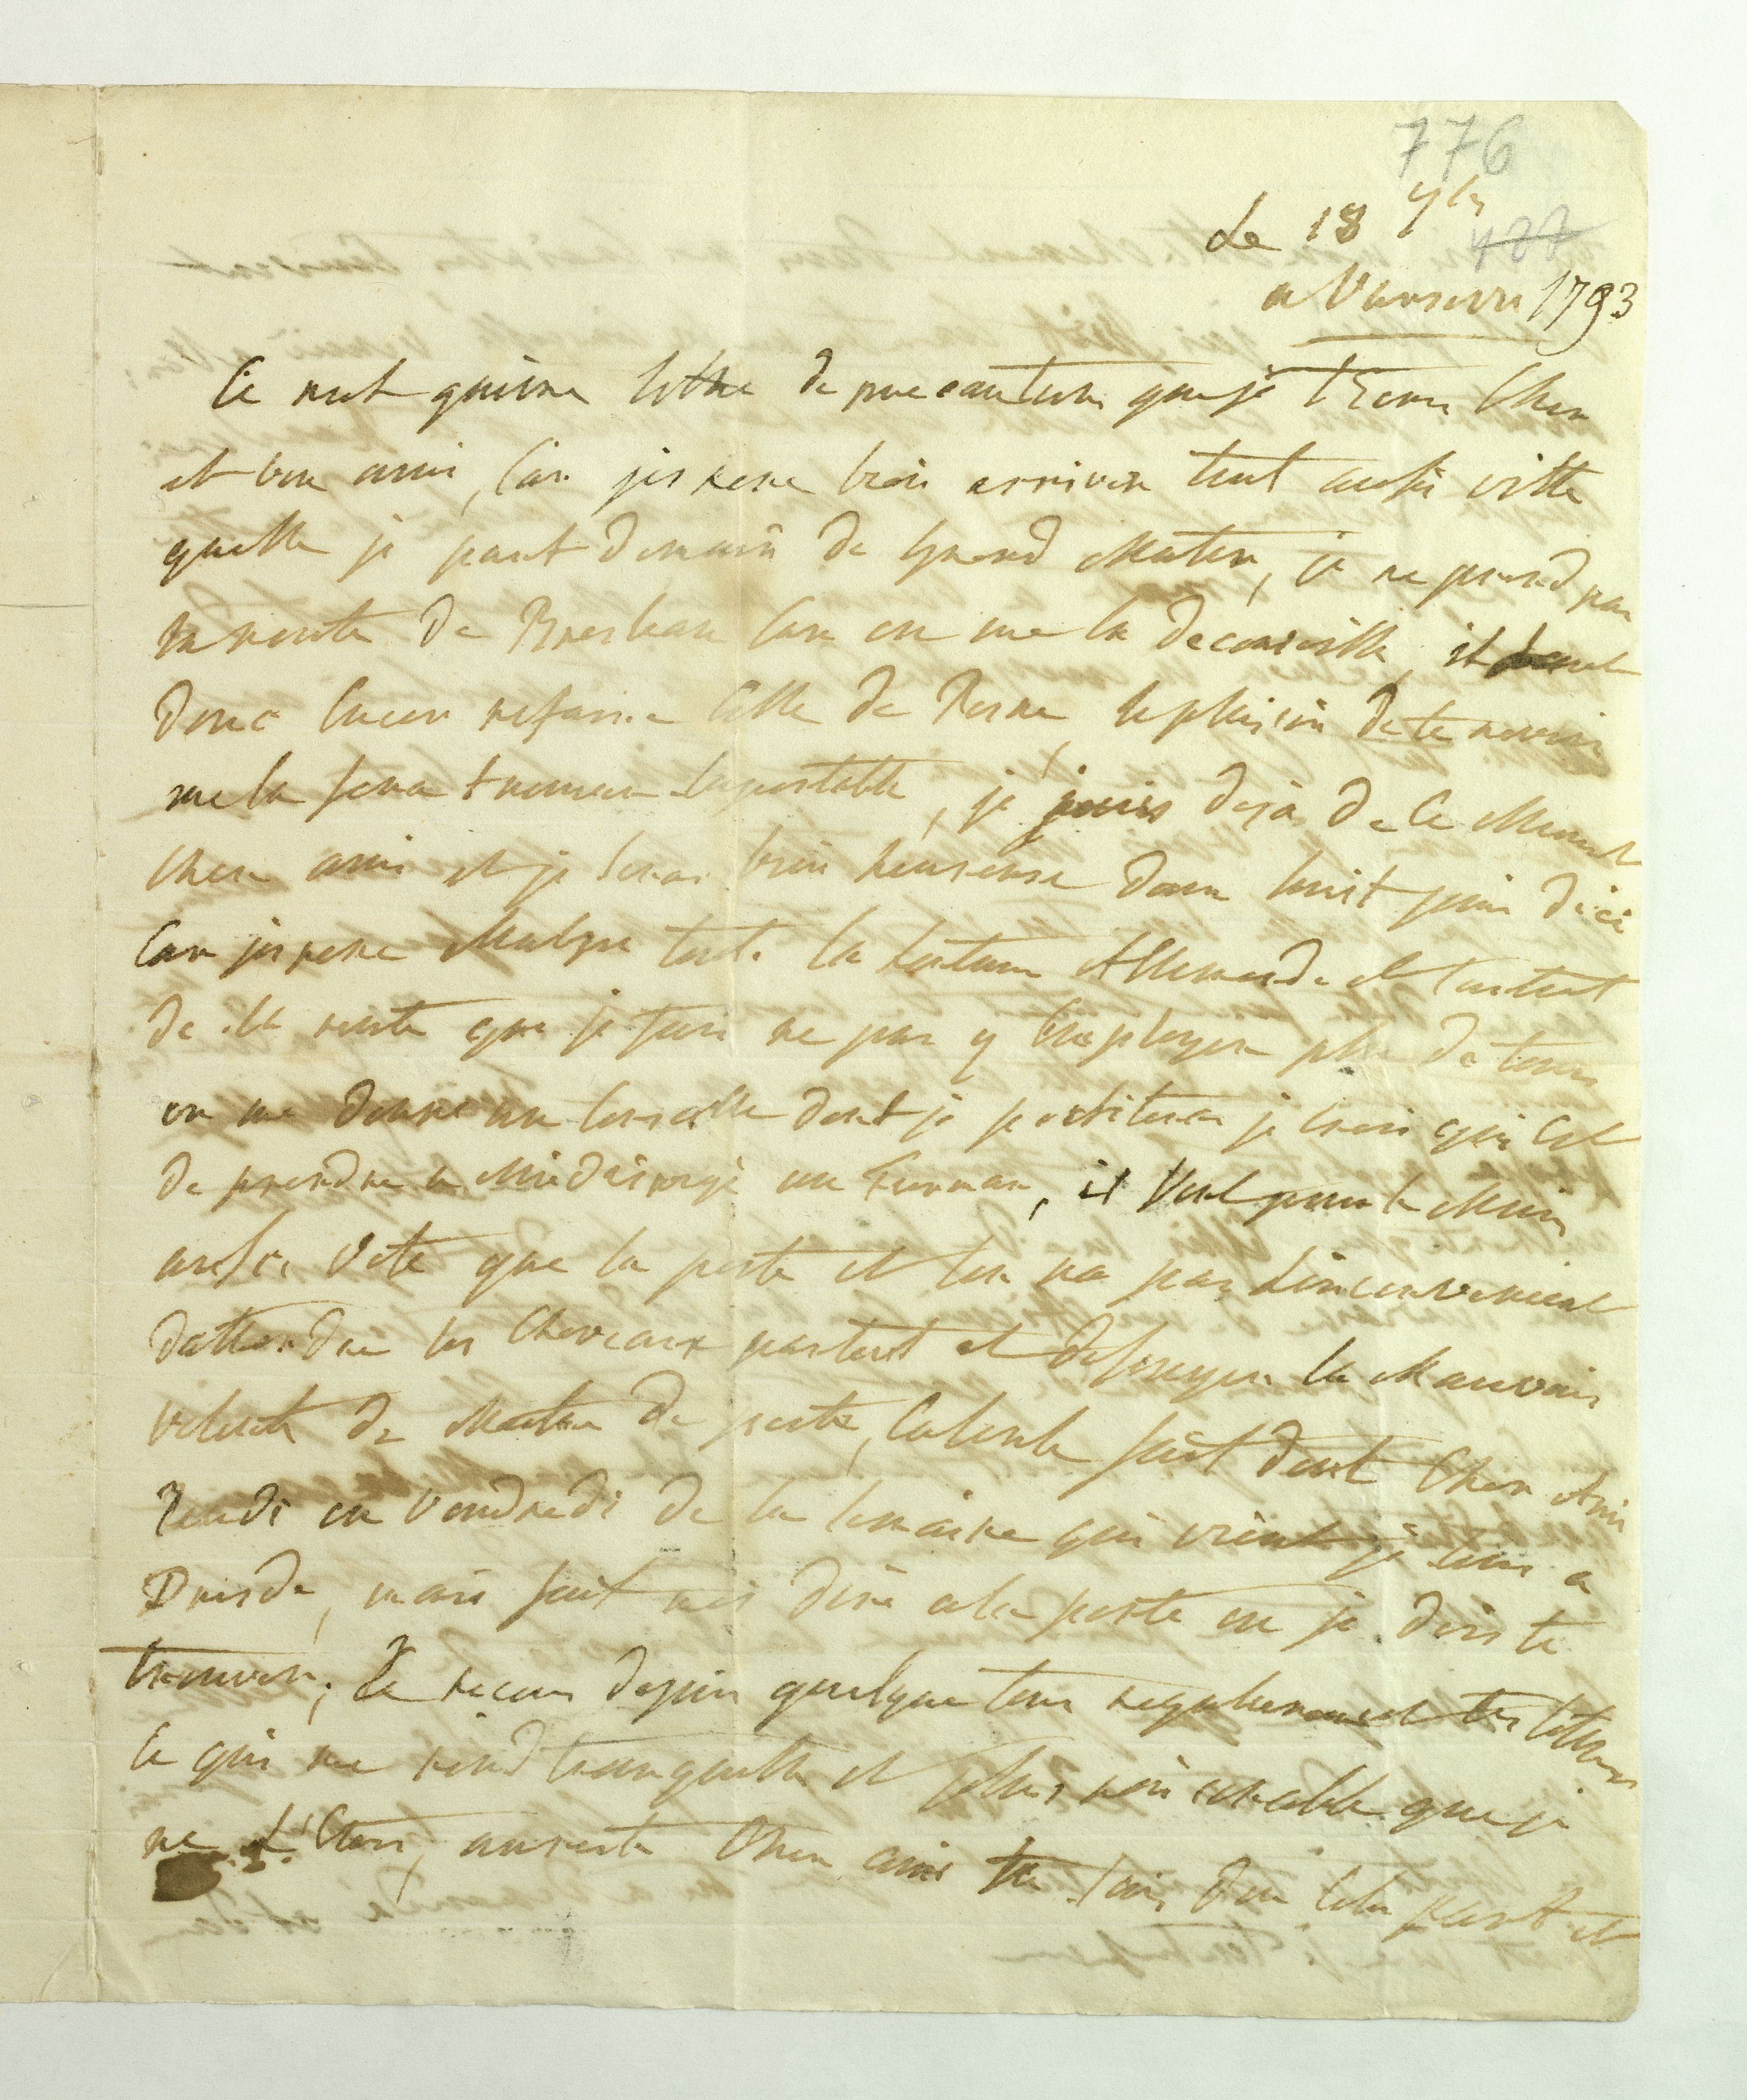 776
Le 18 7br
487
a Varsovi 1793
Ce nest quune lettre de precaution que je tEcris Cher
et bon ami, Car jespere bien arriver tout aussi vitte
quelle je part demain de grand Matin, je ne prend pas
la route de Breslau Car on me la deconseille, il faut
donc encor refaire Celle de Posne, le plaisir de te revoir
me la fera trouver suportable, je jouis deja de Ce Moment
Cher ami et je serai bien heureuse dans huit jour dici
Car jespere Malgre toute la lenteur Allemande et surtout
de la route que je fais ne pas y Employer plus de tems
on me donne un Conseille dont je profiterai je crois qui Est
de prendre a Miedzirzyc un Furman, il Vont pour le Moins
aussi Vite que la poste et lon na pas Linconvenient
dattendre les Chevaux partout et dessuyer la Mauvais
volonte de Maitre de poste, Calcule sait dont Cher Ami
Jeudi ou Vendredi de la semaine qui vient je suis a
Dresde, mais fait moi dire a la poste ou je dois te
trouver; Je recois depuis quelque tems regulierement tes lettres
Ce qui me rend tranquille et plus raisonable que je
ne L'Etois, au reste Cher ami tu sais d'un Cote part et